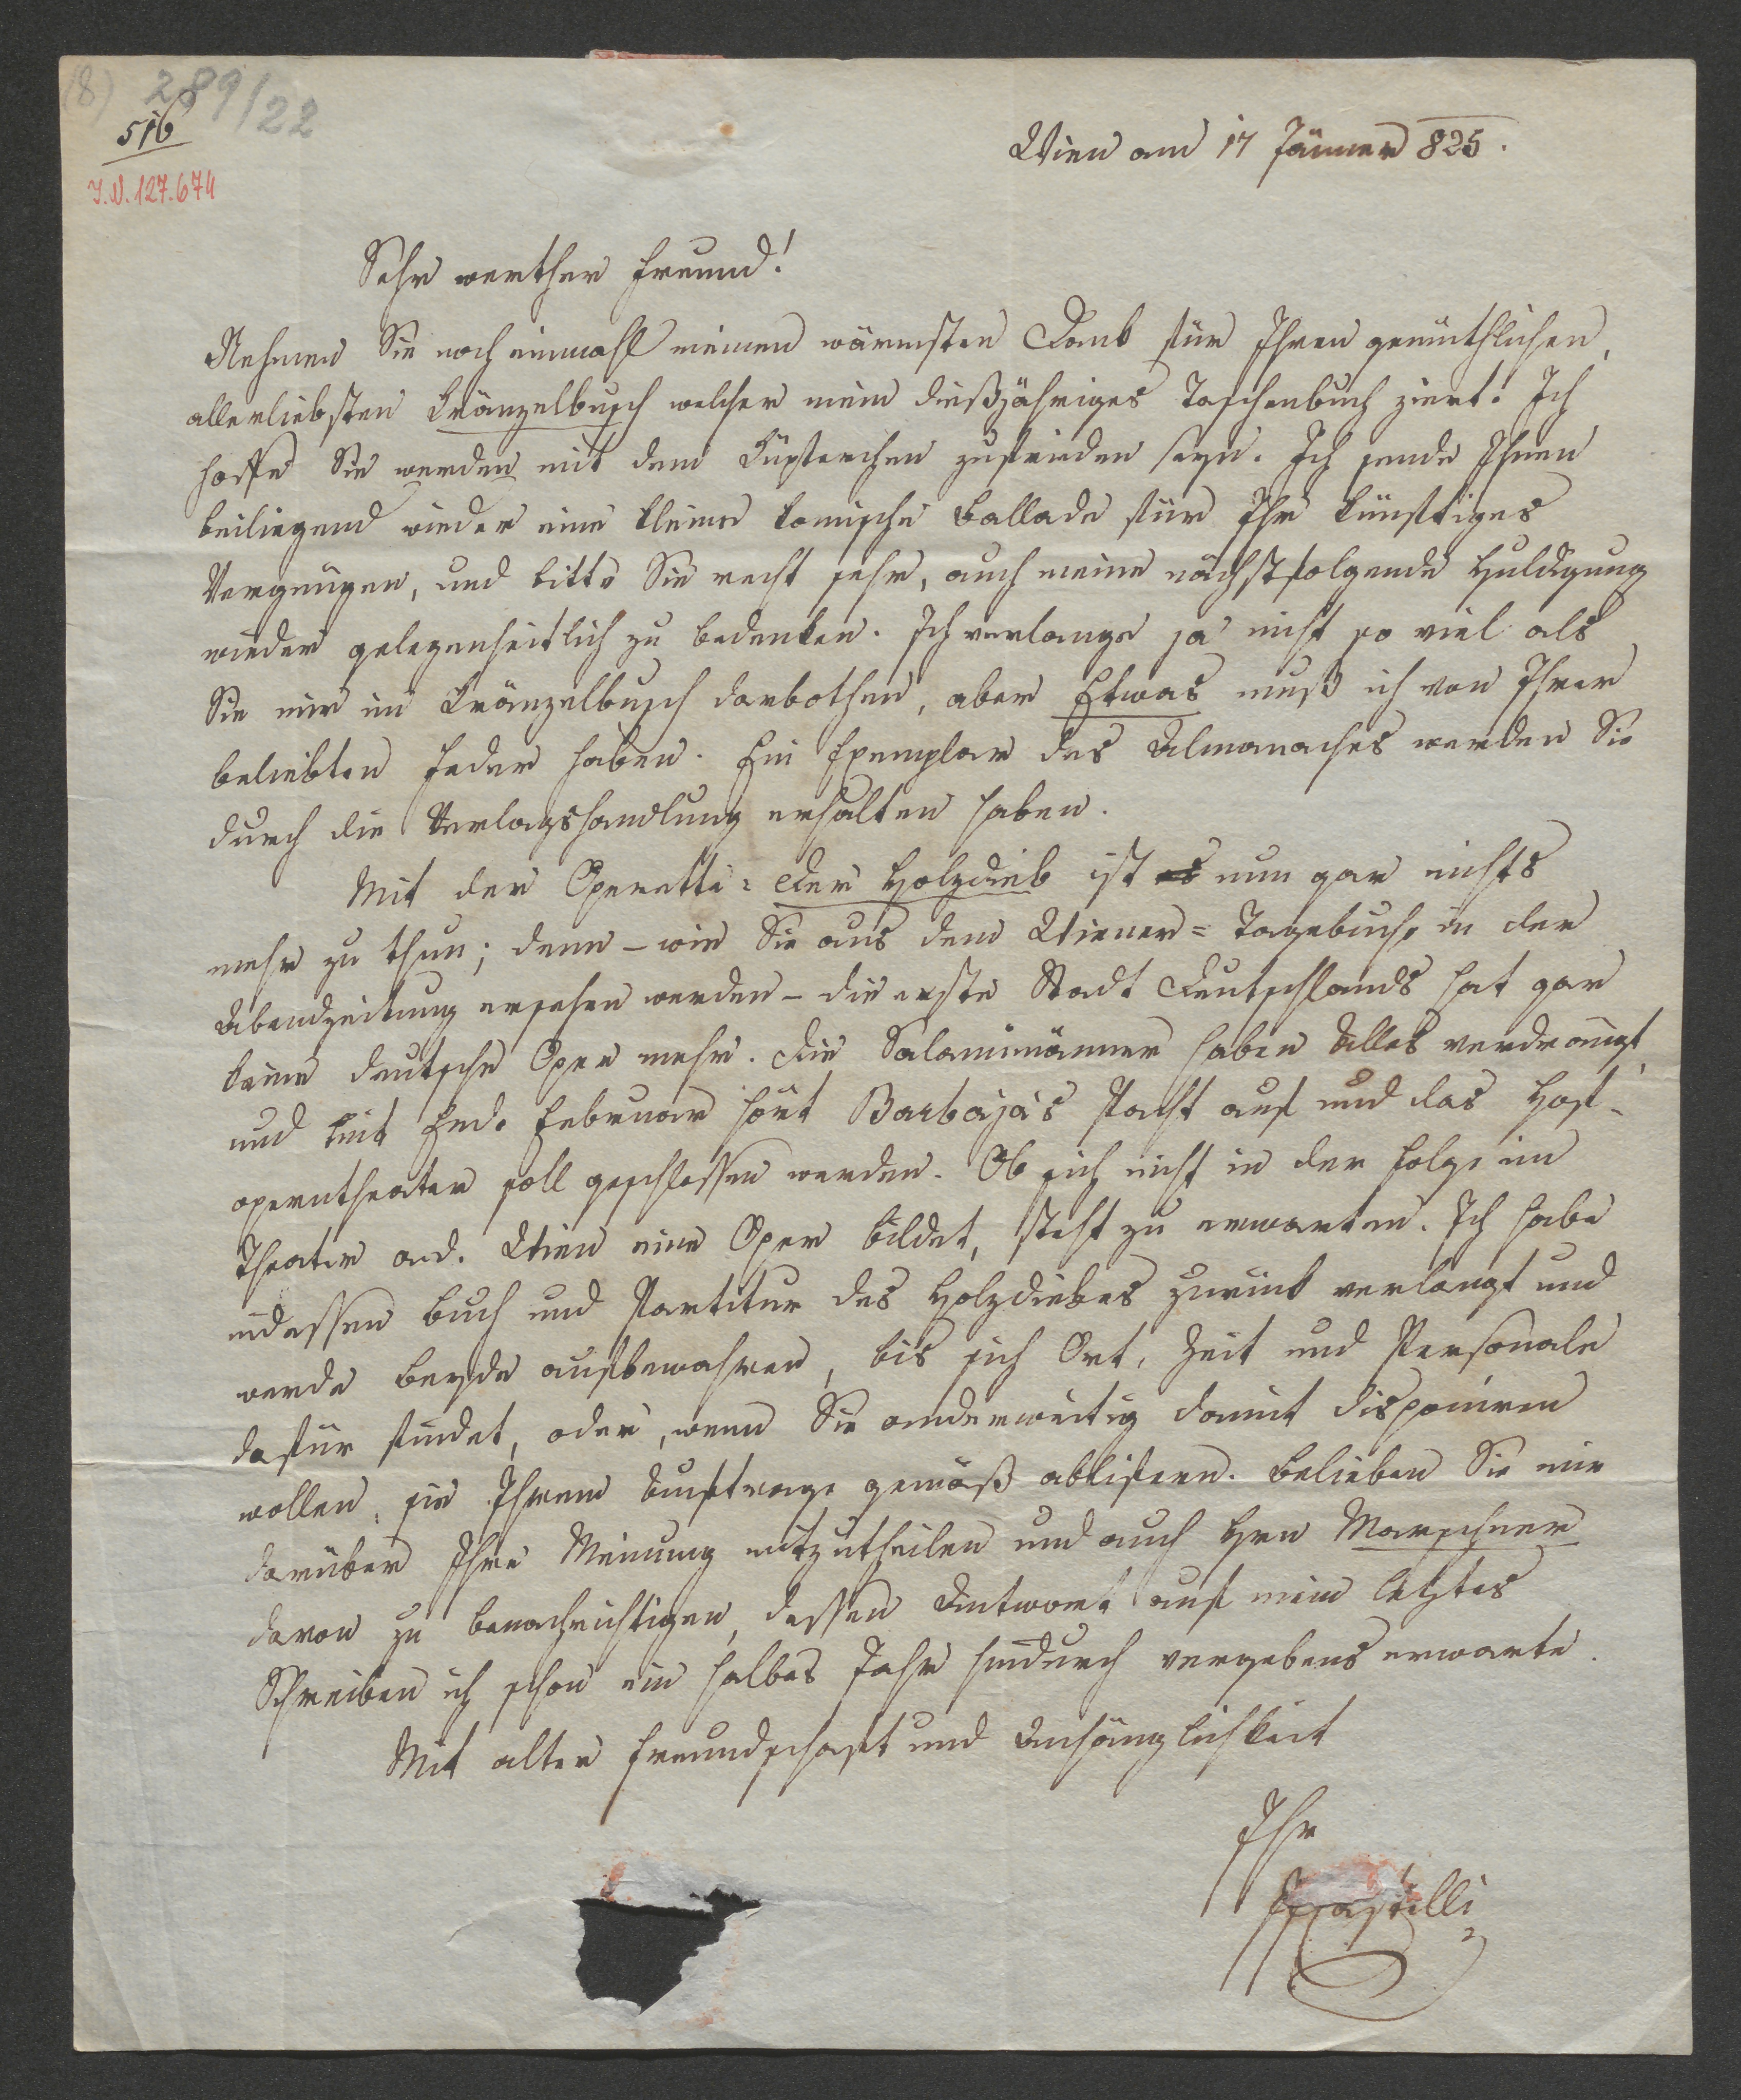 (8) 289/22
516
I.N. 127.674
Wien am 17 Jänner 825.
Sehr werther Freund!
Nehmen Sie noch einmahl meinen wärmsten Dank für Ihren gemüthlichen,
allerliebsten Kränzelbusch welcher mein dießjähriges Taschenbuch ziert. Ich
hoffe Sie werden mit dem Küpferchen zufrieden seyn. Ich sende Ihnen
beiliegend wieder eine kleine komische Ballade für Ihr künftiges
Vergnügen, und bitte Sie recht sehr, auch meine nächstfolgende Huldigung
wieder gelegenheitlich zu bedenken. Ich verlange ja nicht so viel als
Sie mir im Kränzelbusch darbothen, aber Etwas muß ich von Ihrer
beliebten Feder haben. Ein Exemplar des Almanaches werden Sie
durch die Verlagshandlung erhalten haben.
Mit der Operette: Der Holzdieb ist es nun gar nichts
mehr zu thun; denn – wie Sie aus dem Wiener=Tagebuche in der
Abendzeitung ersehen werden – die erste Stadt Deutschlands hat gar
keine deutsche Oper mehr. Die Salamimänner haben Alles verdrängt,
und mit Ende Februar hört Barbaja's Pacht auf und das Hof-
operntheater soll geschlossen werden. Ob sich nicht in der Folge im
Theater a. d. Wien eine Oper bildet, steht zu erwarten. Ich habe
indessen Buch und Partitur des Holzdiebes zurück verlangt und
werde beyde aufbewahren, bis sich Ort, Zeit und Personale
dafür findet, oder, wenn Sie anderweitig damit disponiren
wollen, sie Ihrem Auftrage gemäß abliefern. Belieben Sie mir
darüber Ihre Meinung mitzutheilen und auch Hrn Marschner
davon zu benachrichtigen, dessen Antwort auf mein letztes
Schreiben ich schon ein halbes Jahr hindurch vergebens erwarte.
Mit alter Freundschaft und Anhänglichkeit
Ihr
Castelli